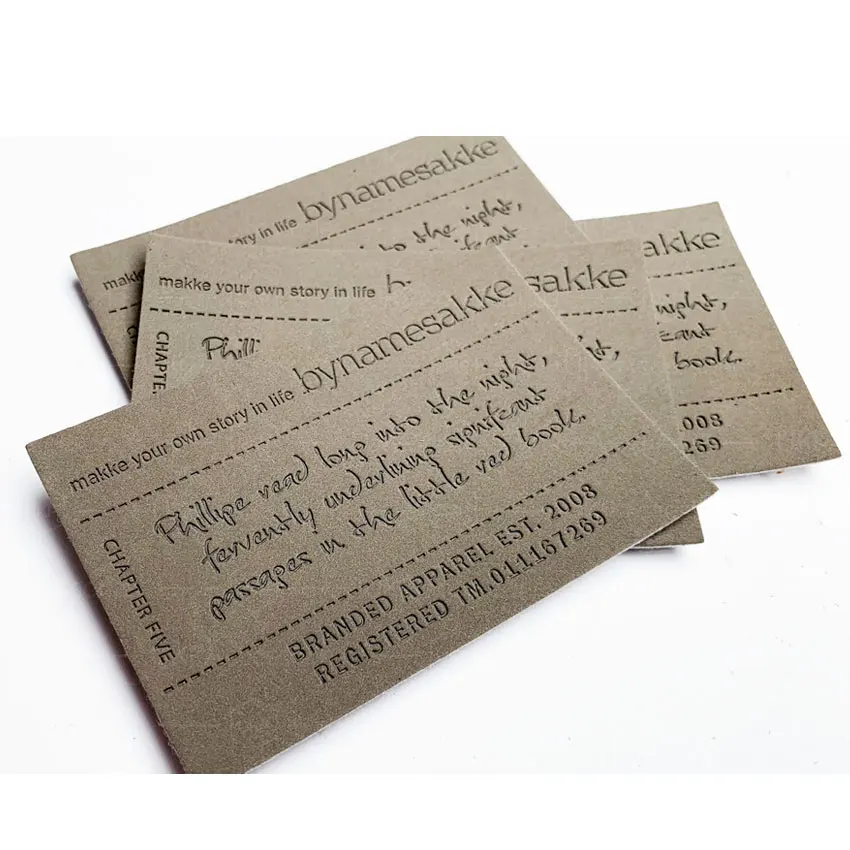 makke your own story in life bynamesakke
Phillipe read long into the night,
fervently underlining signifcant
passages in the little red book.
CHAPTER FIVE
BRANDED APPAREL EST. 2008
REGISTERED TM.011167269
makke your own story in life b
sakke
Phill
night,
CHAPTE
makk ory in life bynamesakke
to the night,
akke
night,
book.
008
269